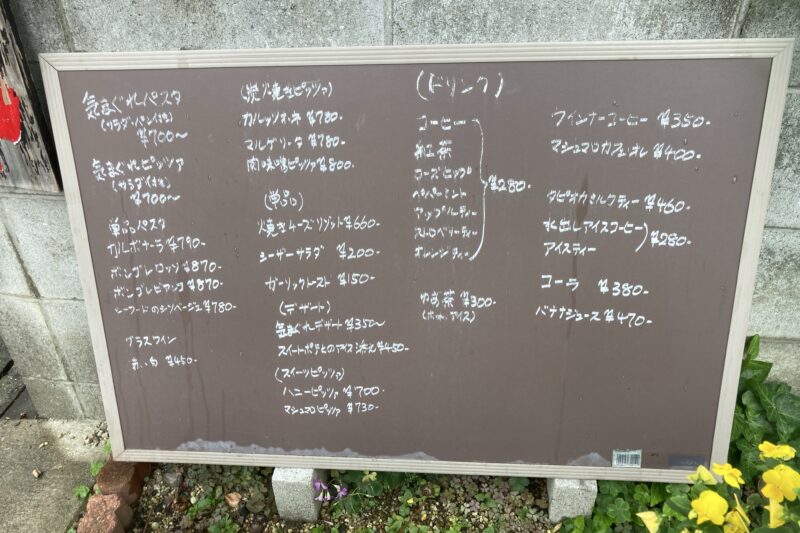 気まぐれパスタ
(サラダ・パン付)
¥700~
気まぐれピッツァ
(サラダ付)
¥700~
単品パスタ
カルボナーラ ¥790-
ボンゴレロッソ ¥870-
ボンゴレビアンコ ¥870-
シーフードのジェノベーゼ ¥780-
グラスワイン
赤・白 ¥450-
(炭火焼きピッツァ)
カルツォーネ ¥780-
マルゲリータ ¥780-
肉味噌ピッツァ ¥800-
(単品)
焼きチーズリゾット ¥660-
シーザーサラダ ¥200-
ガーリックトースト ¥150-
(デザート)
気まぐれデザート ¥350~
スイートポテトのアイス添え ¥450-
(スイーツピッツァ)
ハニーピッツァ ¥700
マシュマロピッツァ ¥730-
(ドリンク)
コーヒー
紅茶
ローズヒップ
ペパーミント
アップルティー
ストロベリーティー
オレンジティー
¥280-
ゆず茶 ¥300-
(ホット、アイス)
ウインナーコーヒー ¥350-
マシュマロカフェオレ ¥400-
タピオカミルクティー ¥460-
水出しアイスコーヒー
アイスティー
¥280-
コーラ ¥380-
バナナジュース ¥470-